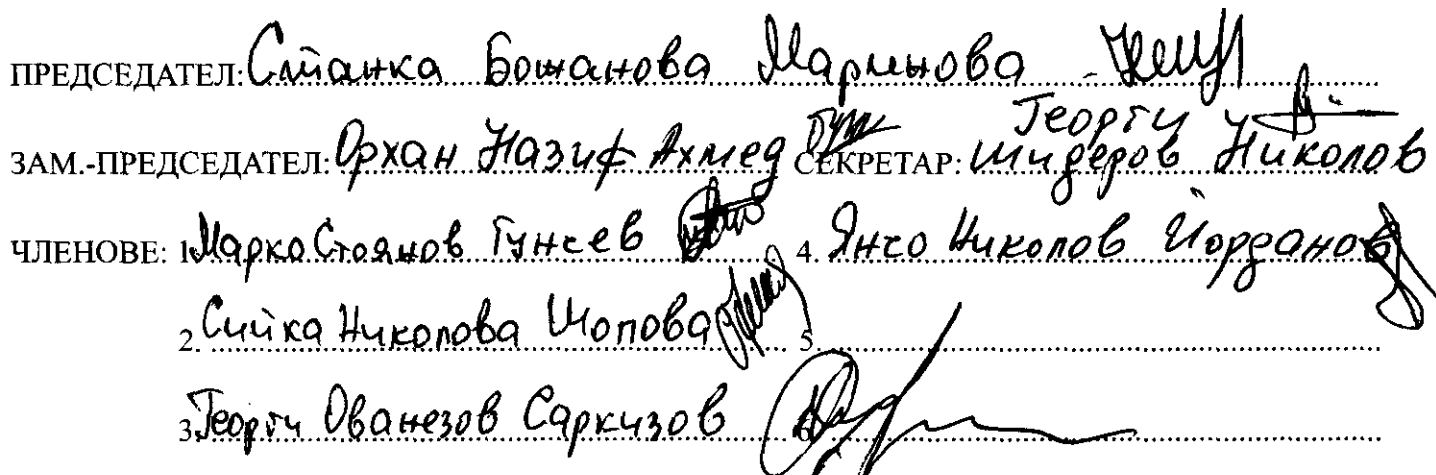 ПРЕДСЕДАТЕЛ: Станка Божанова Маринова
Георги
ЗАМ.-ПРЕДСЕДАТЕЛ: Орхан Назиф Ахмед СЕКРЕТАР: Шидеров Николов
ЧЛЕНОВЕ: 1. Марко Стоянов Гунчев 4. Янчо Николов Йорданов
2. Сийка Николова Шопова 5.
3. Георги Ованезов Саркизов 6.